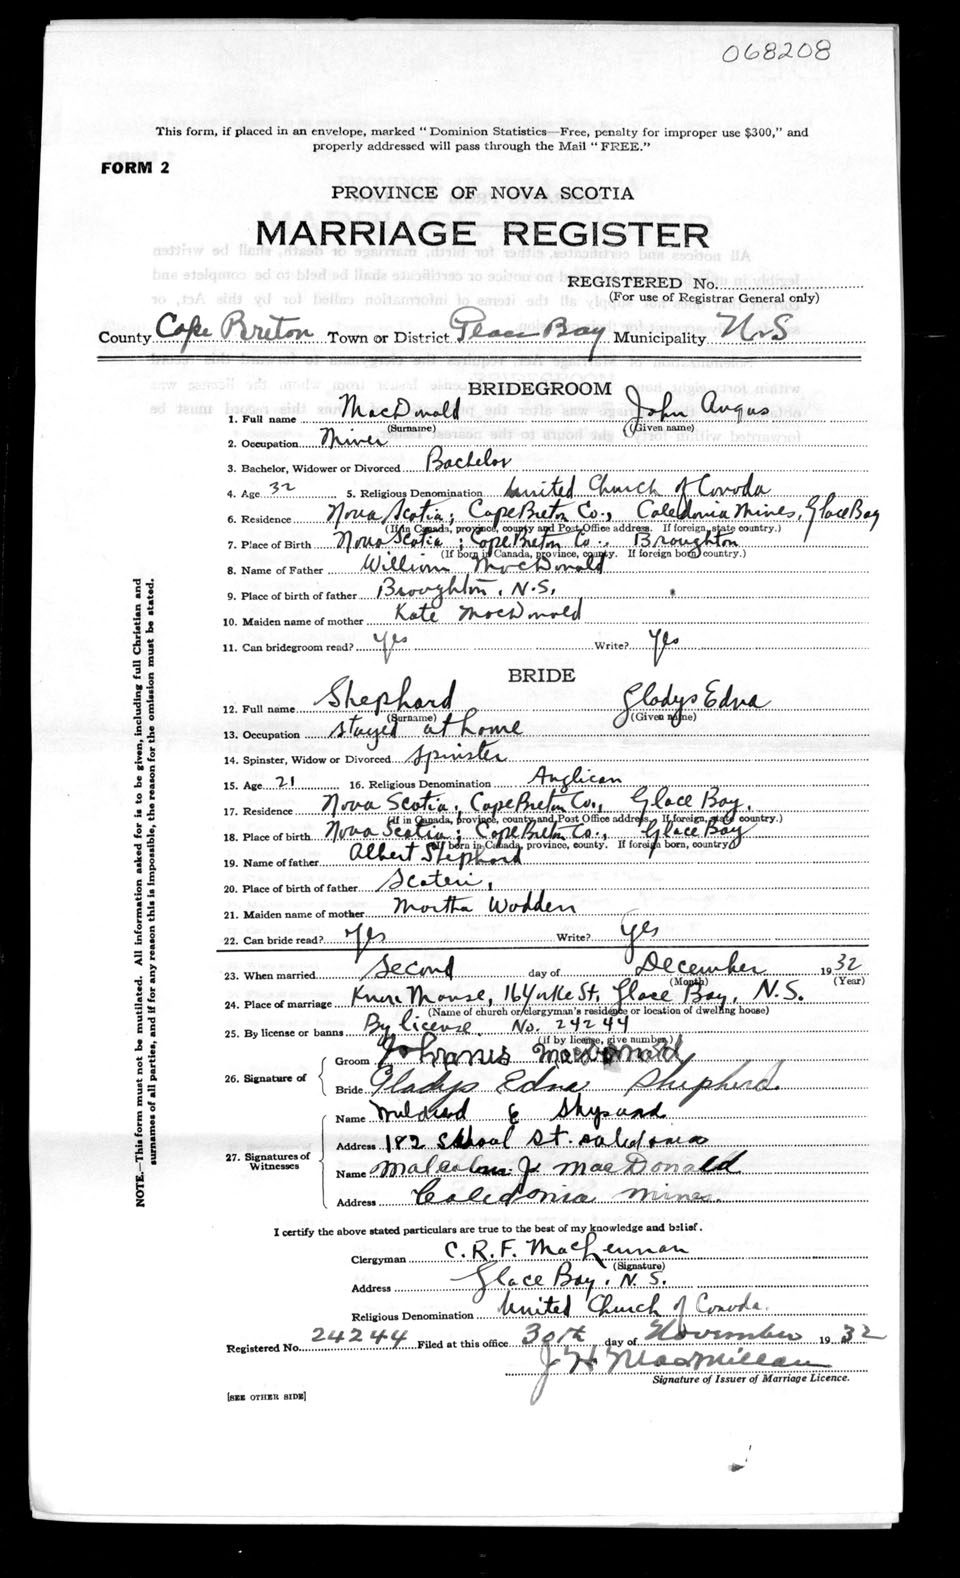 068208
This form, if placed in an envelope, marked "Dominion Statistics—Free, penalty for improper use $300," and
properly addressed will pass through the Mail "FREE."
FORM 2
PROVINCE OF NOVA SCOTIA
MARRIAGE REGISTER
REGISTERED No.
(For use of Registrar General only)
County Cape Breton Town or District Glace Bay Municipality N S
BRIDEGROOM
1. Full name MacDonald John Angus
(Surname) (Given name)
2. Occupation Miner
3. Bachelor, Widower or Divorced Bachelor
4. Age 32 5. Religious Denomination United Church of Canada
6. Residence Nova Scotia; Cape Breton Co., Caledonia Mines, Glace Bay
(If in Canada, province, county and Post Office address. If foreign, state country.)
7. Place of Birth Nova Scotia; Cape Breton Co., Broughton
(If born in Canada, province, county. If foreign born, country.)
8. Name of Father William MacDonald
9. Place of birth of father Broughton, N.S.
10. Maiden name of mother Kate MacDonald
11. Can bridegroom read? Yes Write? Yes
BRIDE
12. Full name Shephard Gladys Edna
(Surname) (Given name)
13. Occupation stayed at home
14. Spinster, Widow or Divorced Spinster
15. Age 21 16. Religious Denomination Anglican
17. Residence Nova Scotia; Cape Breton Co., Glace Bay,
(If in Canada, province, county and Post Office address. If foreign, state country.)
18. Place of birth Nova Scotia; Cape Breton Co., Glace Bay
(If born in Canada, province, county. If foreign born, country)
19. Name of father Albert Shephard
20. Place of birth of father Scateri,
21. Maiden name of mother Martha Wadden
22. Can bride read? Yes Write? Yes
23. When married Second day of December 1932
(Month) (Year)
24. Place of marriage Knox Manse, St., Glace Bay, N.S.
(Name of church or clergyman's residence or location of dwelling house)
25. By license or banns By license No. 24244
(if by license, give number)
Groom MacDonald
26. Signature of
Bride Gladys Edna Shepherd
Name E
Address 182 School St. Caledonia
27. Signatures of
Witnesses
Name Malcolm J. MacDonald
Address Caledonia Mines.
I certify the above stated particulars are true to the best of my knowledge and belief.
Clergyman C. R. F. MacLennan
(Signature)
Address Glace Bay, N. S.
Religious Denomination United Church of Canada.
Registered No. 24244 Filed at this office 30th day of November 1932
J H MacMillan
Signature of Issuer of Marriage Licence.
[SEE OTHER SIDE]
NOTE.—This form must not be mutilated. All information asked for is to be given, including full Christian and
surnames of all parties, and if for any reason this is impossible, the reason for the omission must be stated.